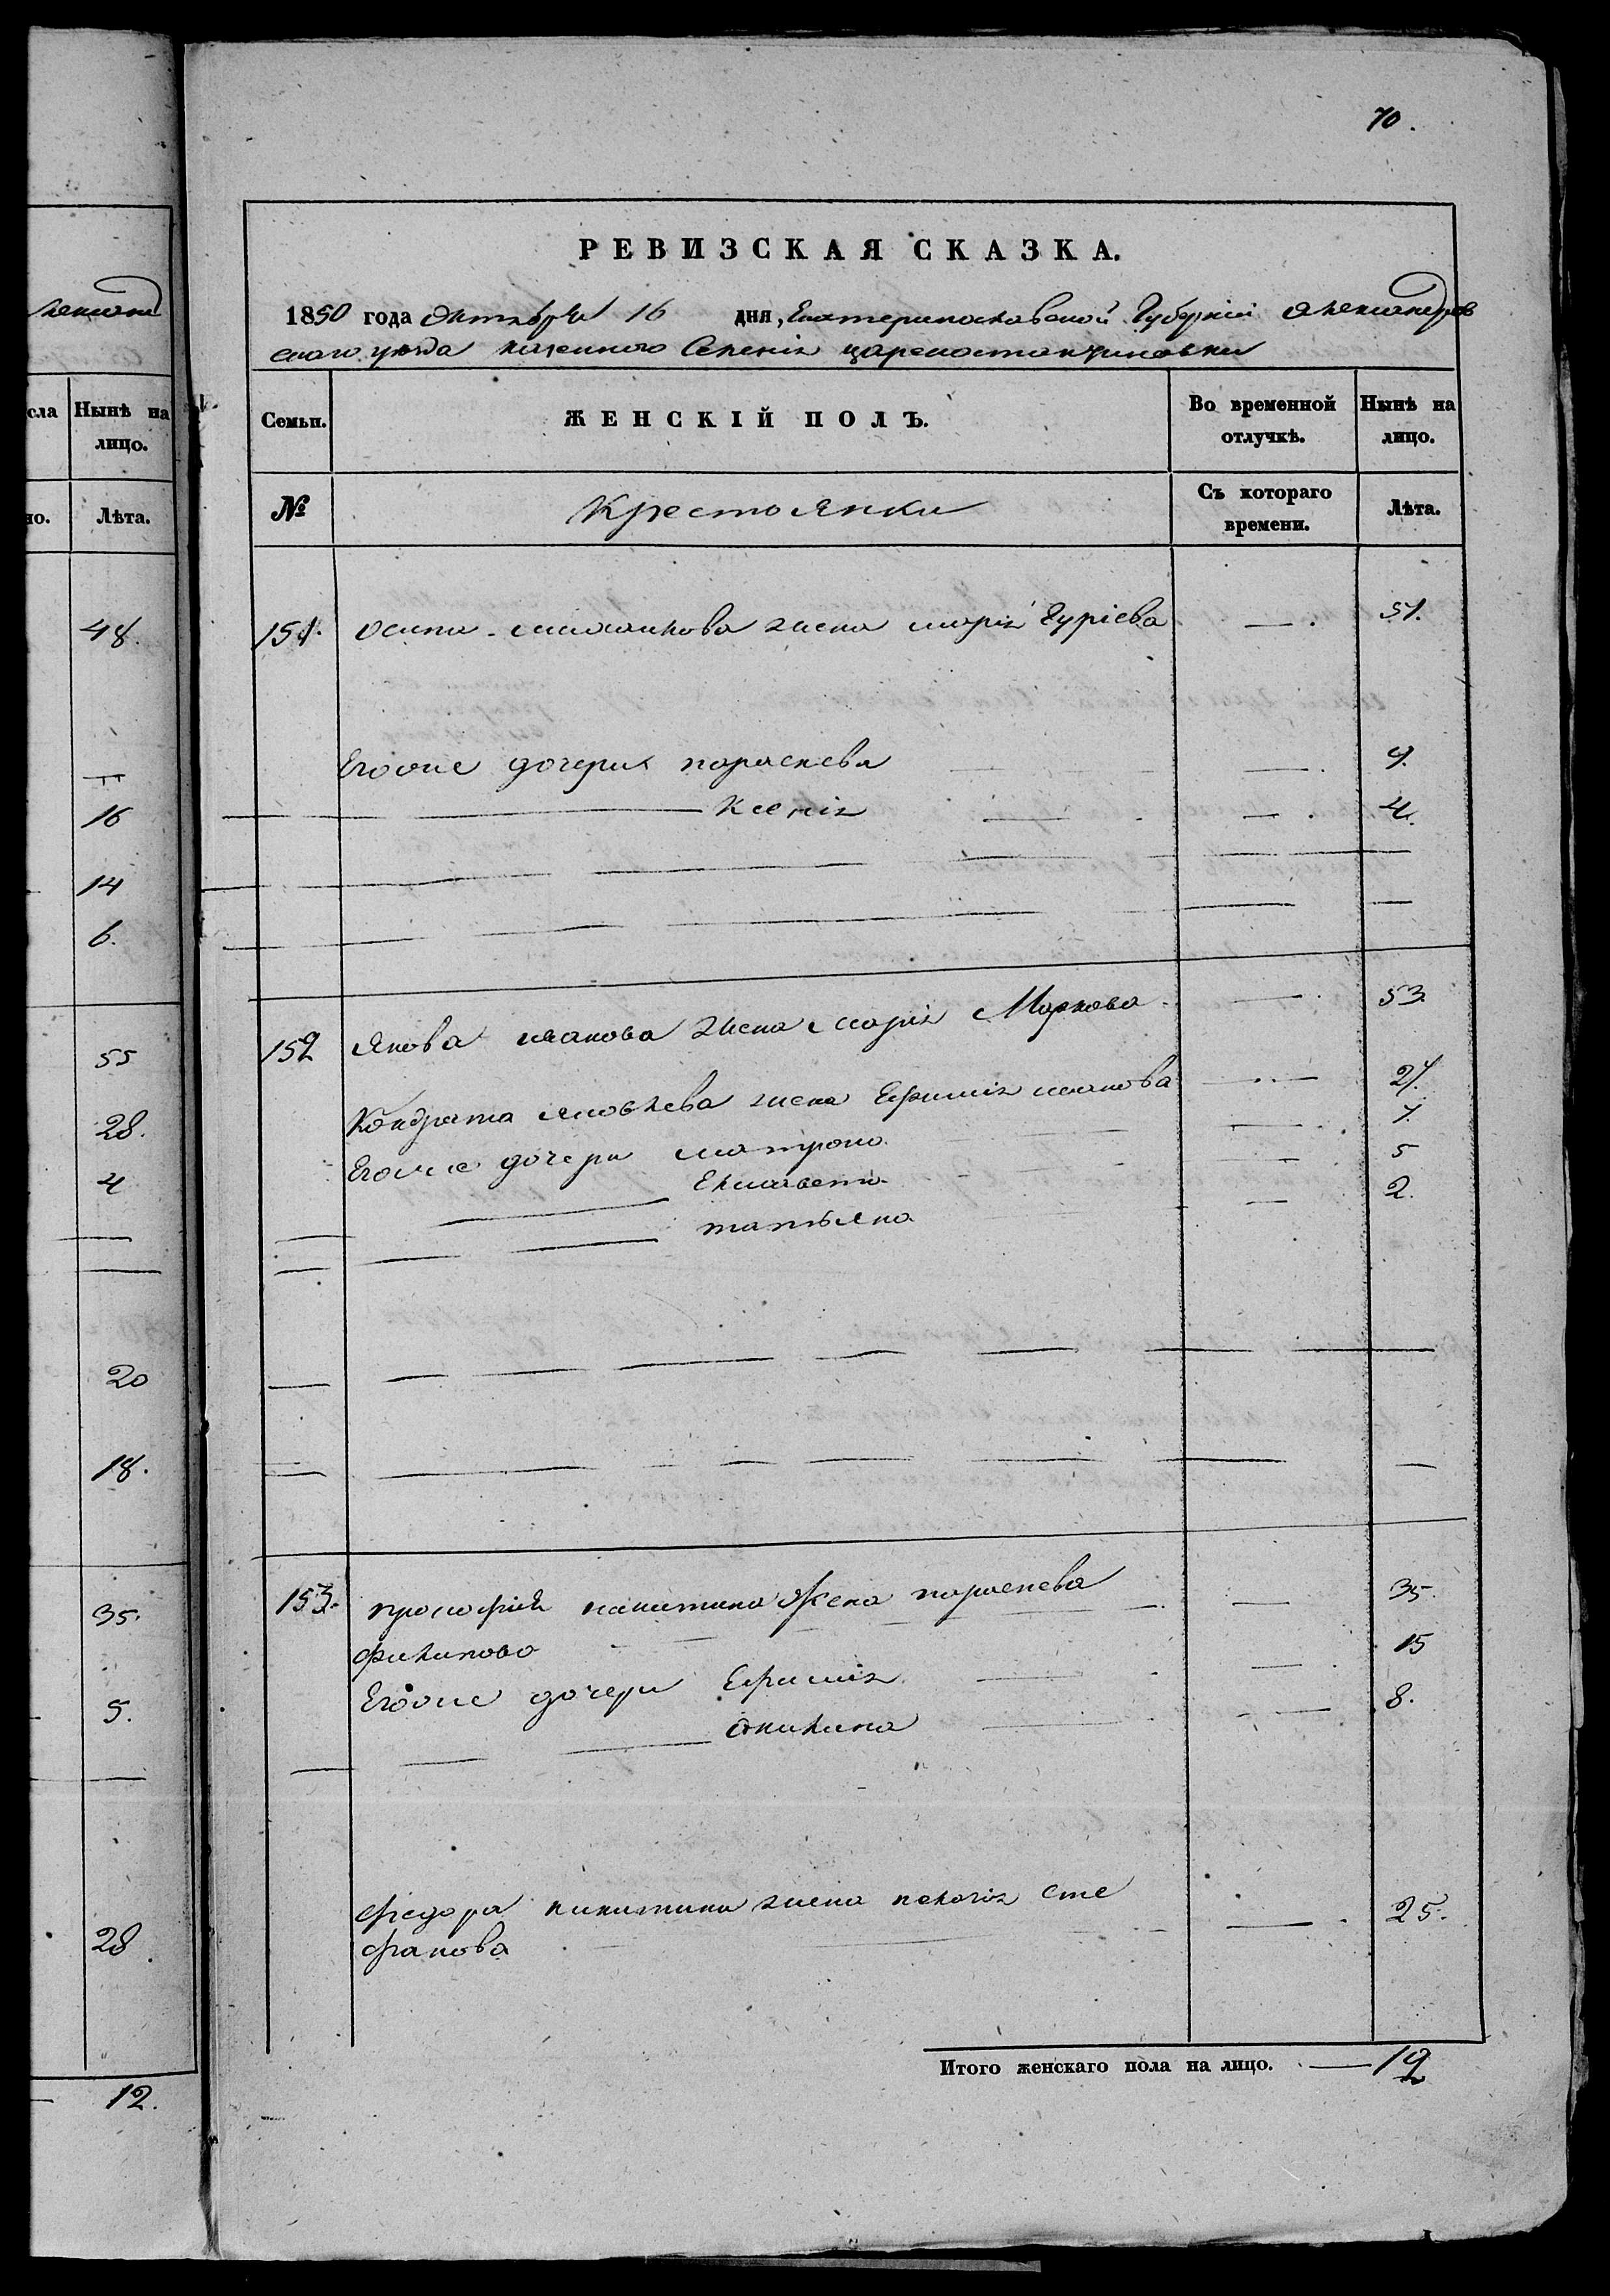 лександ
сла
Нынѣ на
лицо.
но.
Лѣта.
48.
16
14
6.
55
28.
4
20
18.
35.
5.
28
12.
70.
РЕВИЗСКАЯ СКАЗКА.
1850 года Октября 16 дня, Екатеринославской Губерніи Александров
скаго уезда казенного Селенія
Семьи.
ЖЕНСКІЙ ПОЛЪ.
Во временной
отлучкѣ.
Нынѣ на
лицо.
№
Крестоянки
Съ котораго
времени.
Лѣта.
151. Осипа жена марія Гуріева 51.
Егоже дочери параскева 9.
Ксенія 4.
152 Якова иванова жена марія Маркова 53
Кондрата яковлева жена Ефимія иванова 27.
Егоже дочери матрона 7.
Елисавета 5
татьяна 2.
153. прокофія никитина Жена параскева 35.
филипова
Егоже дочери Ефимія 15
акилина 8.
федора никитина жена пелагія Сте 25.
фанова
Итого женскаго пола на лицо. 12